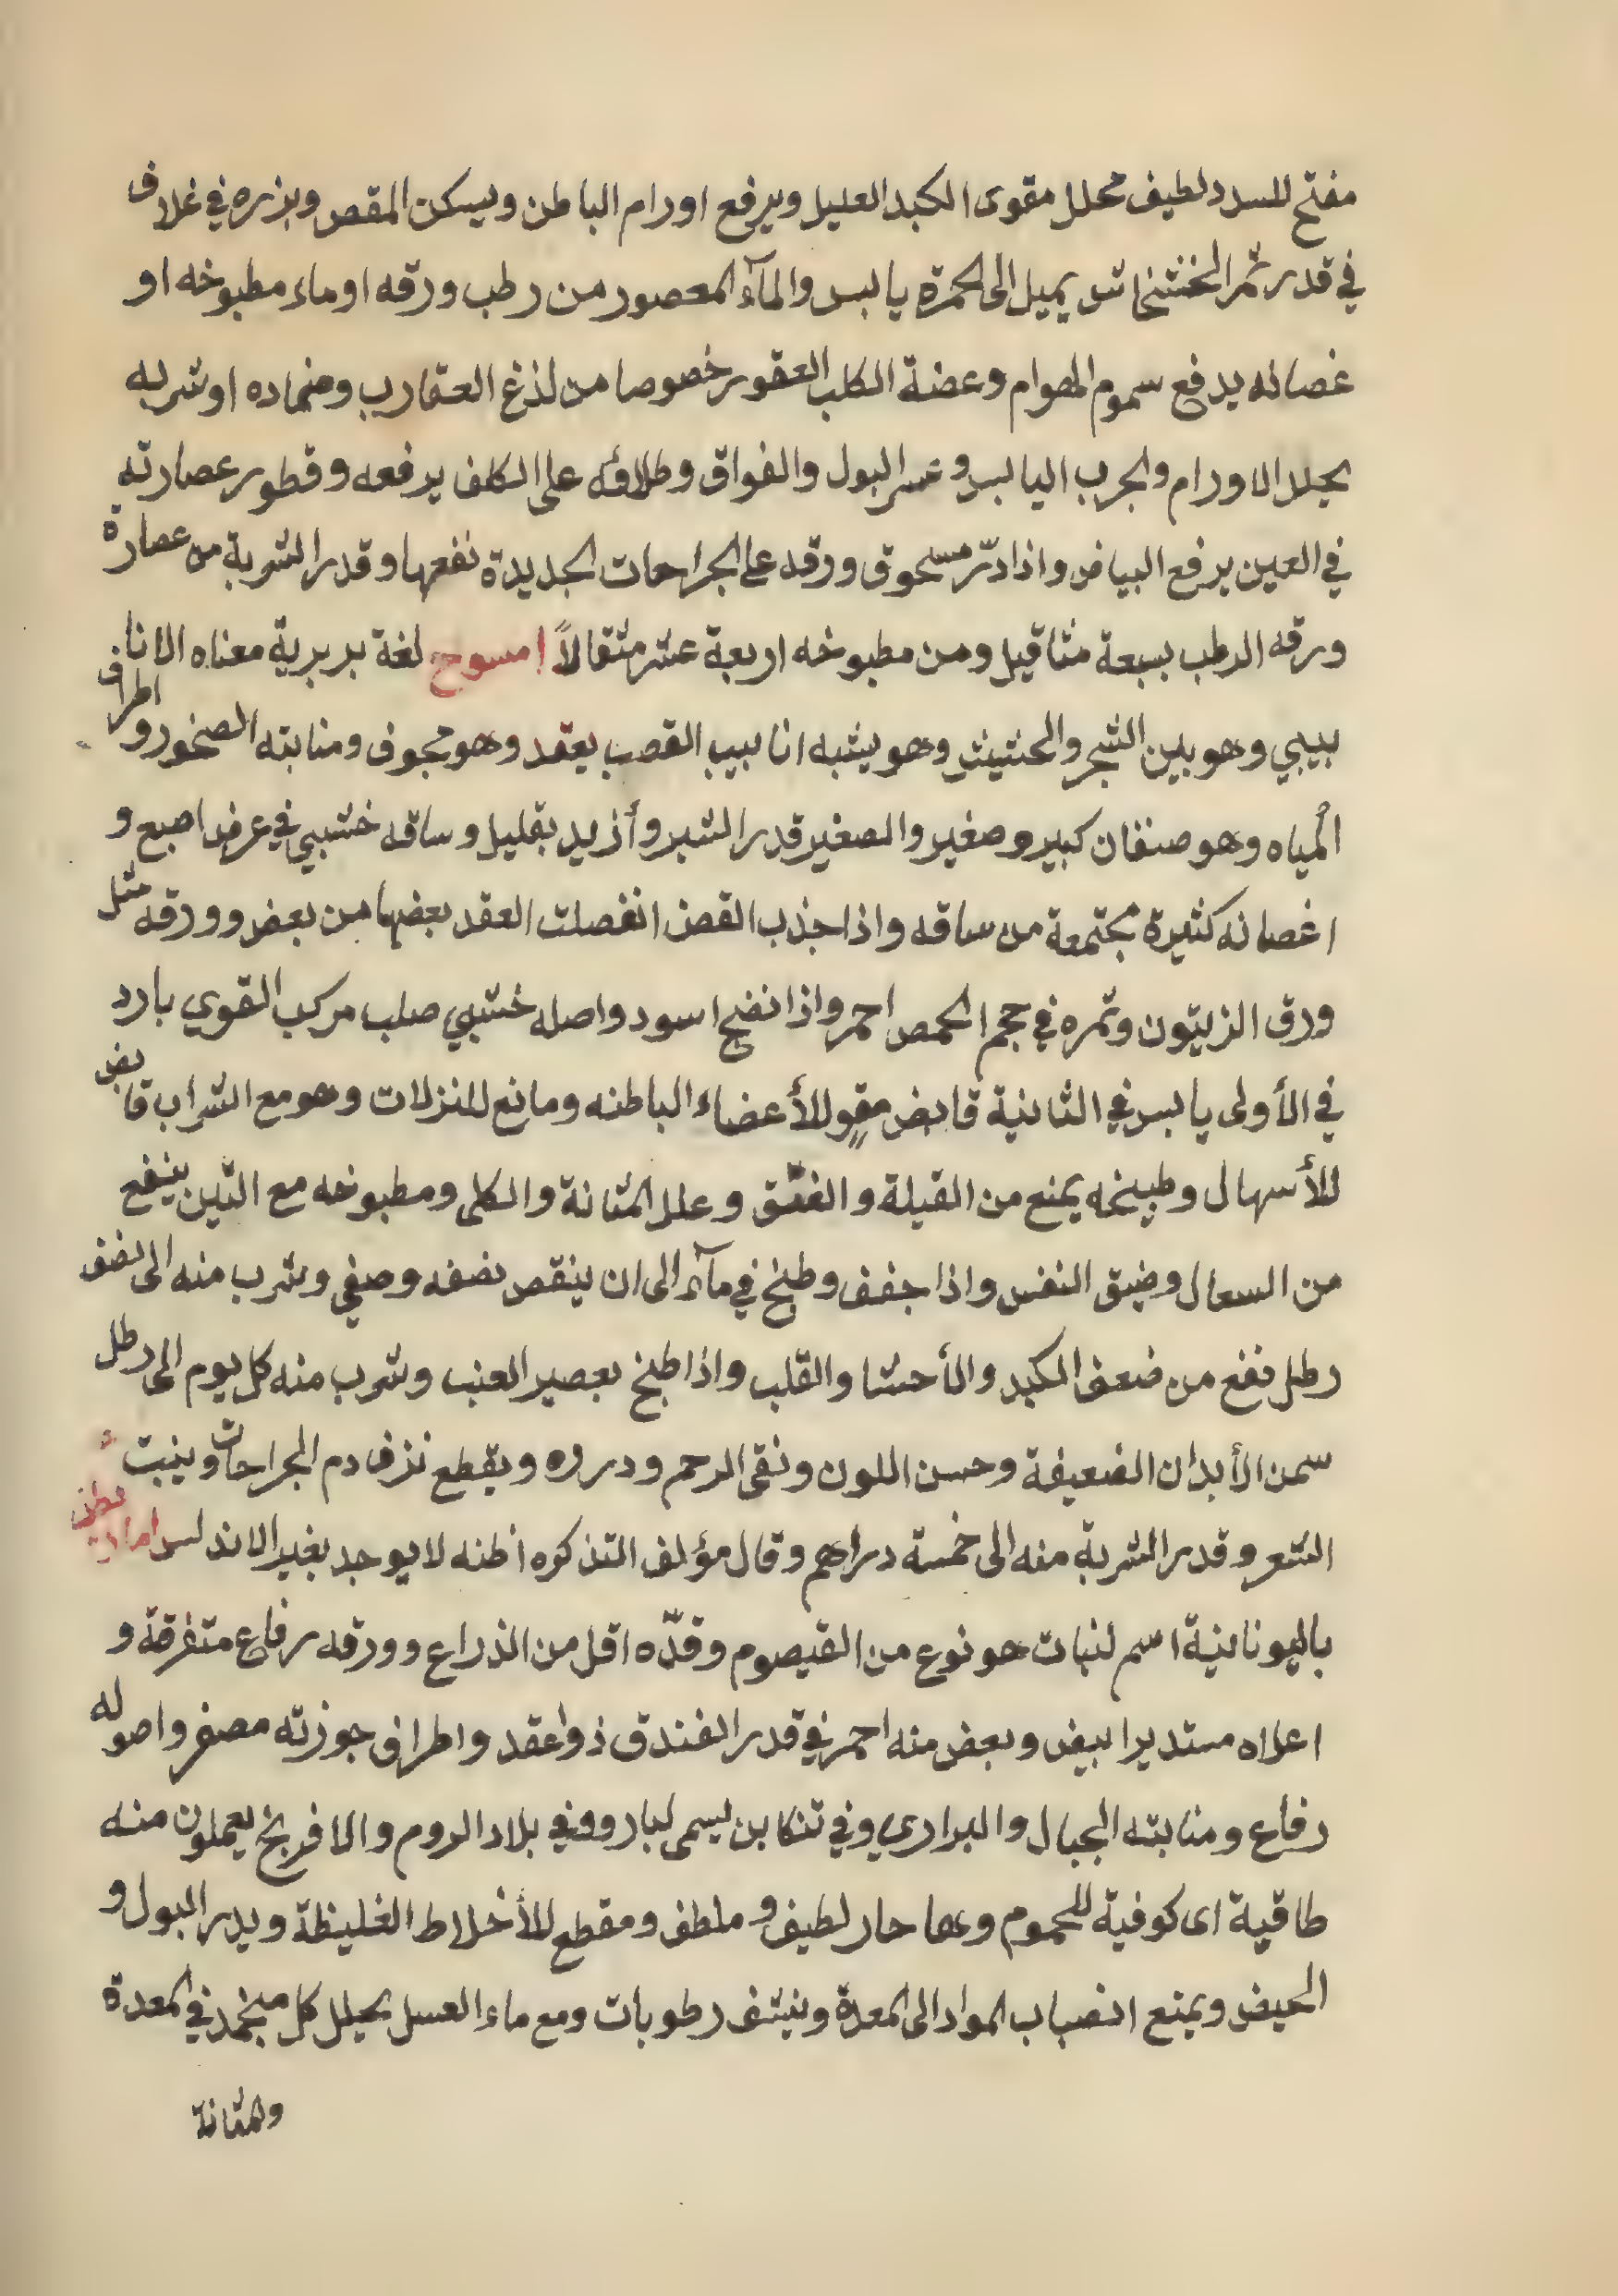 مفتح للسدد لطيف محلل مقوى الكبد العليل ويرفع اورام الباطن ويسكن المقص وبزره في غلاف
في قدر ثمر الخشخاش يميل الى الحمرة يابس والمآء المعصور من رطب ورقه او ماء مطبوخه او
غصانه يدفع سموم الهوام وعضة الكلب العقور خصوصا من لذغ العقارب وضماده او شربه
يحلل الاورام والجرب اليابس وعسر البول والفواق وطلاؤه على الكلف يرفعه وقطور عصارته
في العين يرفع البياض واذا ذرّ مسحوق ورقه على الجراحات الجديدة نفعها وقدر الشربة من عصارة
ورقه الرطب بسبعة مثاقيل ومن مطبوخه اربعة عشر مثقالاً امسوح لغة بربرية معناه الانا
بيبي وهو بين الشجر والحشيش وهو يشبه انابيب القصب يعقد وهو مجوف ومنابته الصخور واطراف
المياه وهو صنفان كبير وصغير والصغير قدر الشبر وأزيد بقليل وساقه خشبي في عرض اصبع و
اغصانه كثيرة مجتمعة من ساقه واذا جذب القصن انفصلت العقد بعضها من بعض وورقه مثل
ورق الزيتون وثمره في حجم الحمص احمر واذا نضج اسود واصله خشبي صلب مركب القوي بارد
في الأولى يابس في الثانية قابض مقوٍ للأعضاء الباطنه ومانع للنزلات وهو مع الشراب قابض
للأسهال وطبيخه يمنع من القيلة والفتق وعلل المثانة والكلى ومطبوخه مع التين ينفع
من السعال وضيق النفس واذا جفف وطبخ في مآء الى ان ينقص نصفه وصفي وشرب منه الى نصف
رطل نفع من ضعف الكبد والأحشا والقلب واذا طبخ بعصير العنب وشرب منه كل يوم الى رطل
سمن الأبدان الضعيفة وحسن اللون ونقى الرحم ودروره ويقطع نزف دم الجراحات وينبت
الشعر وقدر الشربة منه الى خمسة دراهم وقال مؤلف التذكره اظنه لا يوجد بغير الاندلس
باليونانية اسم لنبات هو نوع من القيصوم وقدّه اقل من الذراع وورقه رفاع متفرقة و
اعلاه مستدير ابيض وبعض منه احمر في قدر الفندق ذو عقد واطراف جوزته مصفر واصوله
رفاع ومنابته الجبال والبراري وفي تنكابن يسمى لبارو وفي بلاد الروم والافرنج يعملون منه
طاقية اى كوفية للمحموم وعصا حار لطيف وملطف ومقطع للأخلاط الغليظة ويدر البول و
الحيض ويمنع انصباب المواد الى المعدة وينشف رطوبات ومع ماء العسل يحلل كل منجمد في المعدة
والمثانة